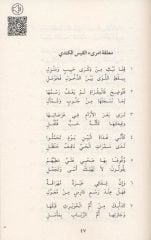 معلقة امرىء القيس الكندي
١ قفا نبك من ذكرى حبيب ومنزل
بسقط اللوى بين الدخول فحومل
٢ فتوضح فالمقراة لم يعف رسمها
لما نسجتها من جنوب وشمأل
٣ ترى بعر الأرآم في عرصاتها
وقيعانها كأنه حب فلفل
٤ كأني غداة البين يوم تحملوا
لدى سمرات الحي ناقف حنظل
٥ وقوفا بها صحبي علي مطيهم
يقولون لا تهلك أسى وتجمل
٦ وإن شفائي عبرة مهراقة
فهل عند رسم دارس من معول
٧ كدأبك من أم الحويرث قبلها
وجارتها أم الرباب بمأسل
٤٧